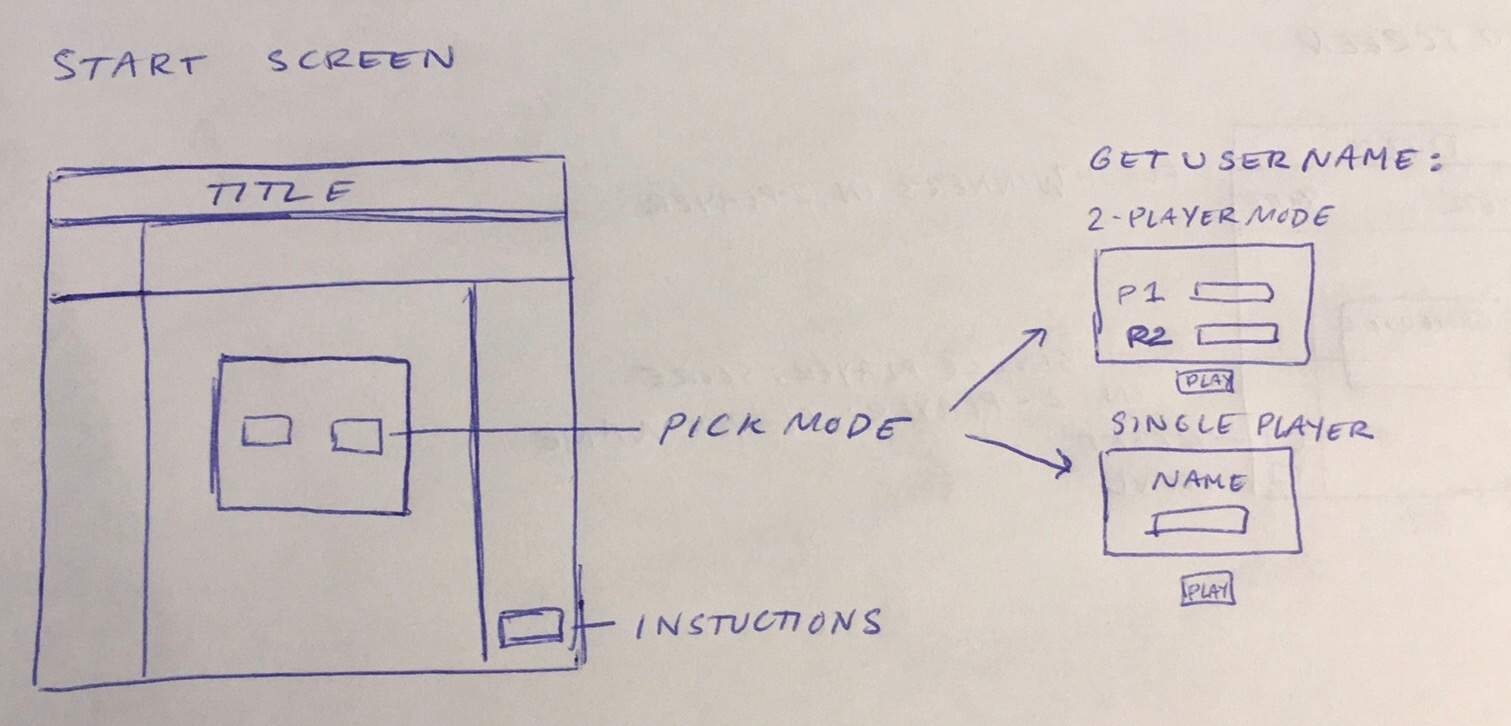 START SCREEN
TITLE
PICK MODE
INSTUCTIONS
GET USER NAME:
2-PLAYER MODE
P1
P2
PLAY
SINGLE PLAYER
NAME
PLAY